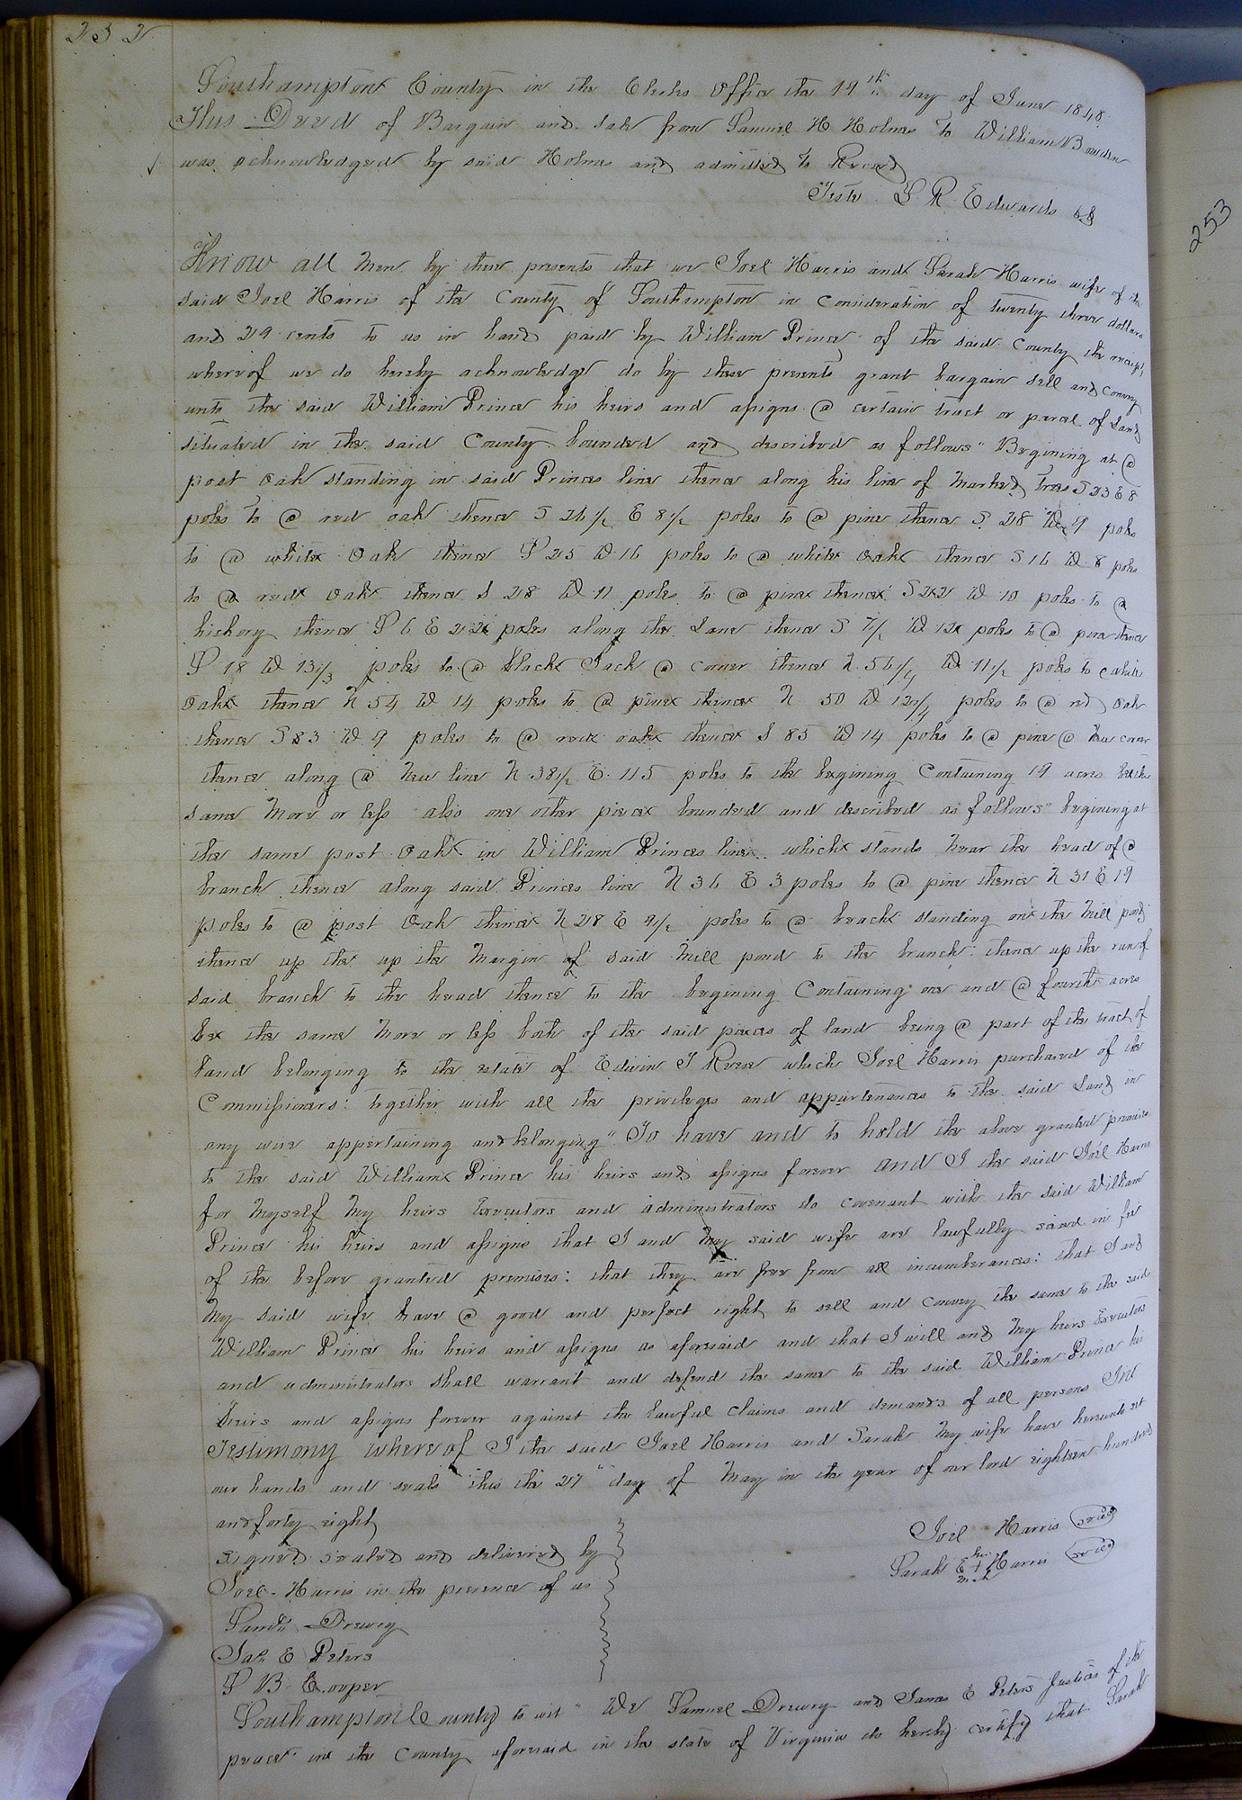 252
Southampton County in the Clerks Office the 19th day of June 1848.
This Deed of Bargain and sale from Samuel H Holmes to William Bowden
was acknowledged by said Holmes and admitted to Record
Teste L R Edwards
253
Know all Men by these presents that we Joel Harris and Sarah Harris wife of the
said Joel Harris of the County of Southampton in consideration of twenty three dollars
and 29 cents to us in hand paid by William Prince of the said County the receipt
whereof we do hereby acknowledge do by these presents grant bargain sell and convey
unto the said William Prince his heirs and assigns @ certain tract or parcel of Land
situated in the said County bounded and described as follows " Begining at @
post oak standing in said Princes line thence along his line of Marked trees S 23 E 8
poles to @ red oak thence S 26 1/2 E 8 1/2 poles to @ pine thence S 28 W 9 poles
to @ white oak thence S 25 W 16 poles to @ white oak thence S 16 W 8 poles
to @ red oak thence S 28 W 11 poles to @ pine thence S 22 W 10 poles to @
hickory thence S 6 E 22 poles along the Lane thence S 7 1/2 W 12 poles to @ pine thence
S 18 W 13 1/3 poles to @ Black Jack @ corner thence N 56 1/4 W 11 1/2 poles to @ white
oak thence N 54 W 14 poles to @ pine thence N 50 W 12 1/4 poles to @ red oak
thence S 83 W 9 poles to @ red oak thence S 85 W 14 poles to @ pine @ new corner
thence along @ New line N 38 1/2 E 115 poles to the begining Containing 19 acres be the
same More or less also one other piece bounded and described as follows " begining at
the same post oak in William Princes line which stands Near the head of @
branch thence along said Princes line N 36 E 3 poles to @ pine thence N 31 E 19
poles to @ post oak thence N 28 E 9 1/2 poles to @ beach standing on the Mill pond
thence up the up the Margin of said Mill pond to the branch: thence up the run of
said branch to the head thence to the begining Containing one and @ fourth acres
be the same More or less both of the said pieces of land being @ part of the tract of
Land belonging to the estate of Edwin T Reese which Joel Harris purchased of the
Commissioners: together with all the privileges and appurtenances to the said Land in
any wise appertaining and belonging " To have and to hold the above granted premises
to the said William Prince his heirs and assigns forever and I the said Joel Harris
for Myself My heirs Executors and administrators do covenant with the said William
Prince his heirs and assigns that I and My said wife are lawfully seized in fee
of the before granted premises: that they are free from all incumberances: that I and
My said wife have @ good and perfect right to sell and convey the same to the said
William Prince his heirs and assigns as aforesaid and that I will and My heirs Executors
and administrators shall warrant and defend the same to the said William Prince his
heirs and assigns forever against the lawful claims and demands of all persons In
Testimony whereof I the said Joel Harris and Sarah My wife have hereunto set
our hands and seals this the 27" day of May in the year of our lord eighteen hundred
and forty eight
signed sealed and delivered by
Joel Harris in the presence of us
Joel Harris (seal)
Sarah E her + mark Harris (seal)
Saml Drewry
Jas E Peters
Southampton County to wit " We Samuel Drewry and James E Peters Justices of the
peace in the County aforesaid in the state of Virginia do hereby certify that Sarah